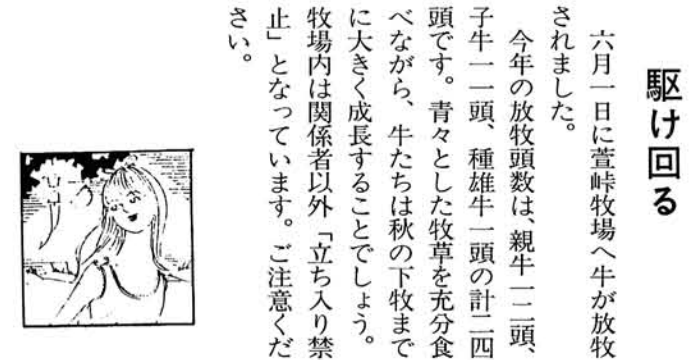 駆け回る
六月一日に萱峠牧場へ牛が放牧
されました。
今年の放牧頭数は、親牛一二頭、
子牛一一頭、種雄牛一頭の計二四
頭です。青々とした牧草を充分食
べながら、牛たちは秋の下牧まで
に大きく成長することでしょう。
牧場内は関係者以外「立ち入り禁
止」となっています。ご注意くだ
さい。